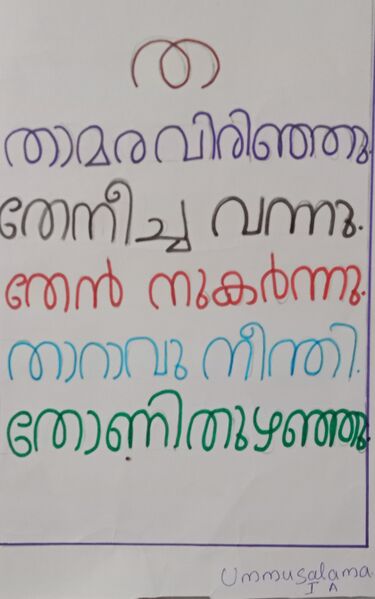 ത
താമര വിരിഞ്ഞു.
തേനീച്ച വന്നു.
തേൻ നുകർന്നു.
താറാവു നീന്തി.
തോണിതുഴഞ്ഞു.
Ummusalama.
I A